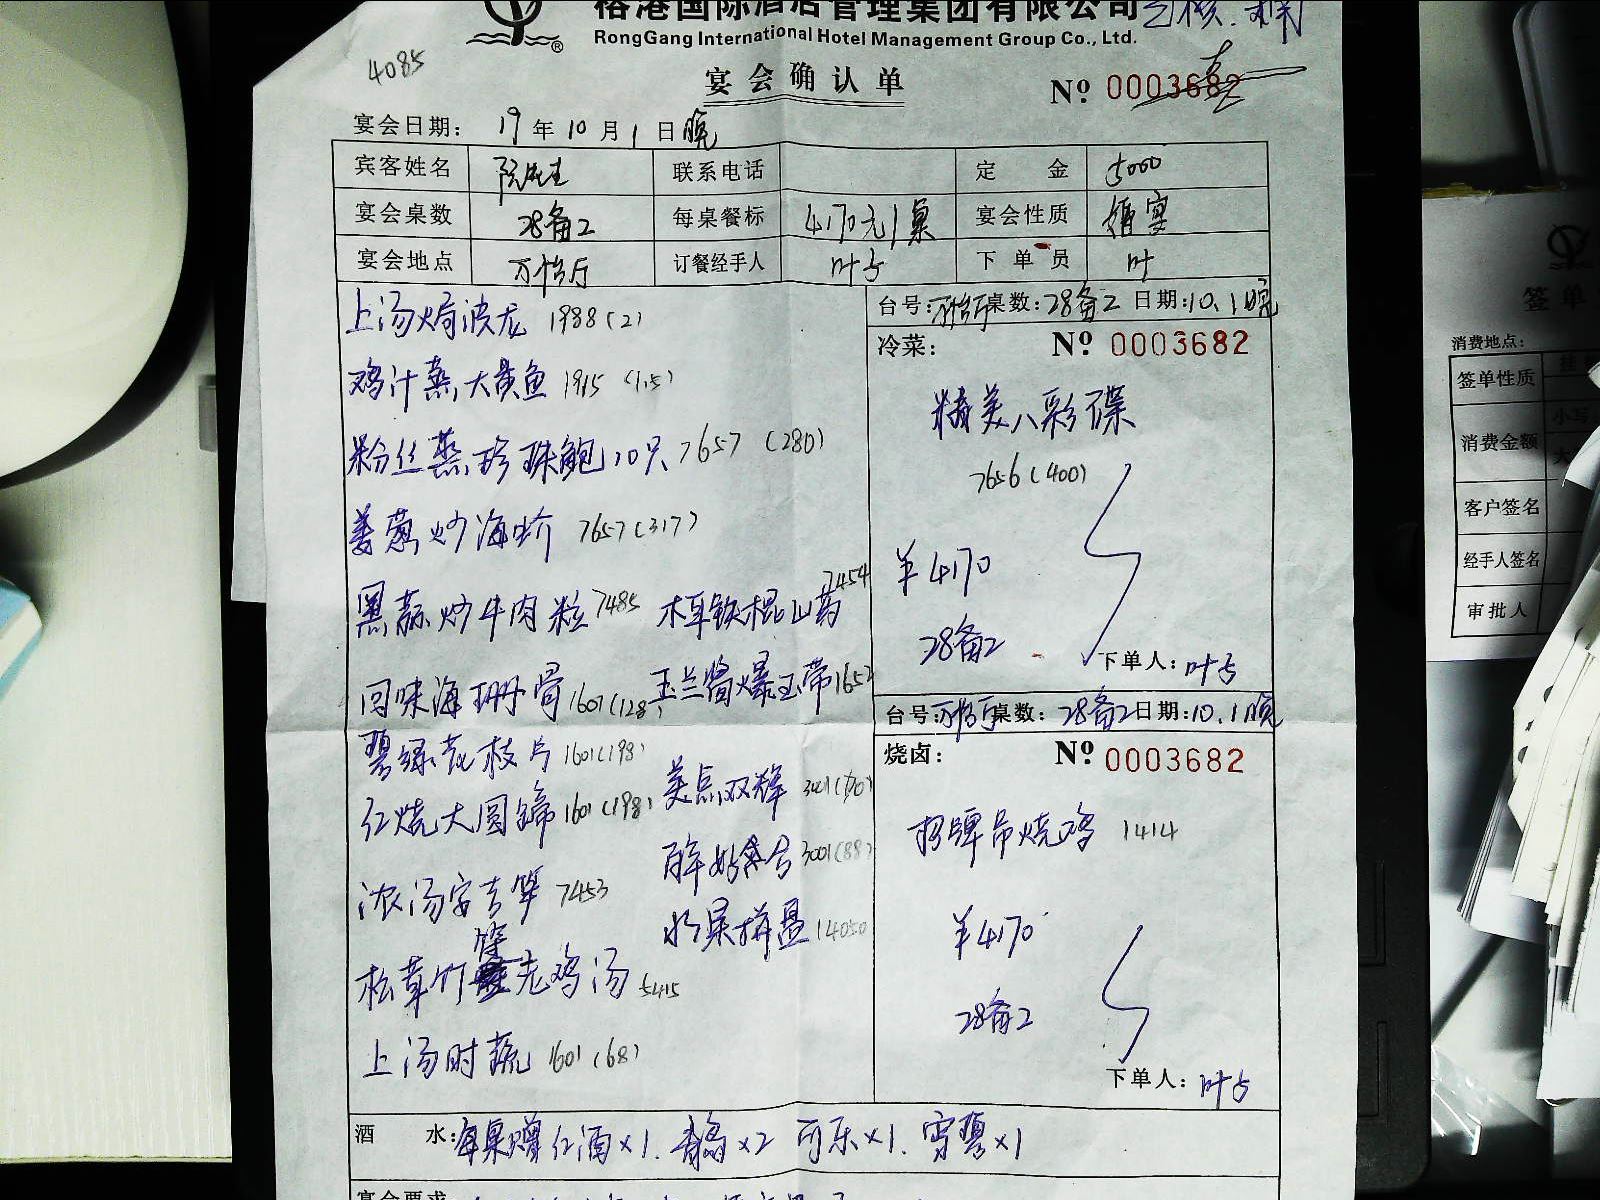 榕港国际酒店管理集团有限公司
RongGang International Hotel Management Group Co., Ltd.
®
4085
宴会确认单
Nº 0003682
宴会日期: 19年10月1日晚
宾客姓名 阮先生 联系电话 定金 5000
宴会桌数 28备2 每桌餐标 4170元/桌 宴会性质 婚宴
宴会地点 万怡厅 订餐经手人 叶 下单员 叶
上汤焗波龙 1988(2)
鸡汁蒸大黄鱼 1915 (1.5)
粉丝蒸珍珠鲍10只 7657 (280)
姜葱炒海蚧 7657(317)
黑蒜炒牛肉粒 7485 木耳铁棍山药 7454
回味海珊骨 1601(128) 玉兰酱爆玉带 1652
碧绿花枝片 1601(198)
红烧大圆蹄 1601(198) 美点双辉 3001
浓汤安吉笋 7453 百年好合 3001(88)
松茸竹笙老鸡汤 5415 水果拼盘 14050
上汤时蔬 1601(68)
台号: 万怡厅 桌数: 28备2 日期: 10.1晚
冷菜: Nº 0003682
精美八彩碟
7656(400)
¥4170
28备2
下单人: 叶
台号: 万怡厅 桌数: 28备2 日期: 10.1晚
烧卤: Nº 0003682
招牌吊烧鸡 1414
¥4170
28备2
下单人: 叶
酒水: 每桌赠红酒×1. 青岛×2 可乐×1. 雪碧×1
宴会要求
签单
消费地点:
签单性质 挂
消费金额 小写
大
客户签名
经手人签名
审批人